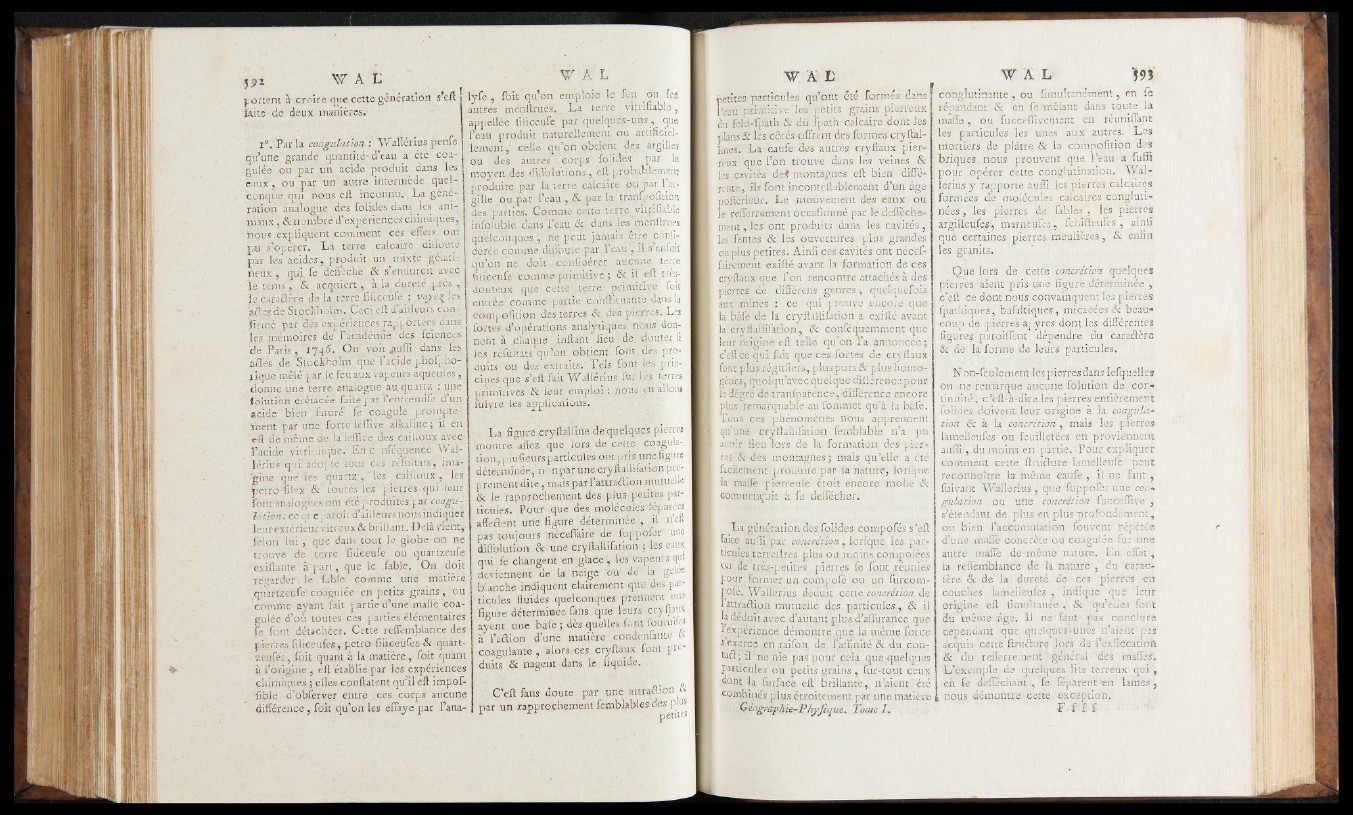 592 W A L
portent à croire que cette génération s'est
faite de deux manières.
1°. Par la coagulation : Wallérius pense
qu'une grande quantité d'eau a été coa-
gulée ou par un acide produit dans les
eaux, ou par un autre intermède quel-
conque qui nous est inconnu. La géné-
ration analogue des solides dans les ani-
maux, & nombre d'expériences chimiques,
nous expliquent comment ces effets ont
pu s'opérer. La terre calcaire dissoute
par les acides, produit un mixte gélati-
neux, qui se dessèche & s'endurcit avec
le tems, & acquiert, à la dureté près,
le caractère de la terre siliceuse ; voyez les
actes de Stockholm. Ceci est d'ailleurs con-
firmé par des expériences rapportées dans
les mémoires de l'académie des sciences
de Paris, 1746. On voit aussi dans les
actes de Stockholm que l'acide phospho-
rique mêlé par le feu aux vapeurs aqueuses,
donne une terre analogue au quartz : une
solution crétacée faite par l'entremise d'un
acide bien saturé se coagule prompte-
ment par une forte lessive alkaline ; il en
est de même de la lessive des cailloux avec
l'acide vitriolique. En conséquence Wal-
lérius qui adopte tous ces résultats, ima-
gine que les quartz, les cailloux, les
petro-silex & toutes les pierres qui leur
sont analogues ont été produites par coagu-
lation : ce que paroît d'ailleurs nous indiquer
leur extérieur vitreux & brillant. Delà vient,
selon lui, que dans tout le globe on ne
trouve de terre siliceuse ou quartzeuse
existante à part, que le sable. On doit
regarder le sable comme une matière
quartzeuse coagulée en petits grains, ou
comme ayant fait partie d'une masse coa-
gulée d'où toutes ces parties élémentaires
se sont détachées. Cette ressemblance des
pierres siliceuses, petro-siliceuses & quart-
zeuses, soit quant à la matière, soit quant
à l'origine, est établie par les expériences
chimiques ; elles constatent qu'il est impos-
sible d'observer entre ces corps aucune
différence, soit qu'on les essaye par l'ana-
W A L
lyse, soit qu'on emploie le feu ou les
autres menstrues. La terre vitrifiable,
appellée siliceuse par quelques-uns, que
l'eau produit naturellement ou artificiel-
lement, celle qu'on obtient des argilles
ou des autres corps solides par le
moyen des dissolutions, est probablement
produite par la terre calcaire ou par l'ar-
gille ou par l'eau, & par la transposition
des parties. Comme cette terre vitrifiable
insoluble dans l'eau & dans les menstrues
quelconques, ne peut jamais être consi-
dérée comme dissoute par l'eau, il s'ensuit
qu'on ne doit considérer aucune terre
siliceuse comme primitive ; & il est très-
douteux que cette terre primitive soit
entrée comme partie constituante dans la
composition des terres & des pierres. Les
sortes d'opérations analytiques nous don-
nent à chaque instant lieu de douter si
les résultats qu'on obtient sont des pro-
duits ou des extraits. Tels sont les prin-
cipes que s'est fait Wallérius sur les terres
primitives & leur emploi : nous en allons
suivre les applications.
La figure crystalline de quelques pierres
montre assez que lors de cette coagula-
tion, plusieurs particules ont pris une figure
déterminée, non par une crystallisation pro-
prement dite, mais par l'attraction mutuelle
& le rapprochement des plus petites par-
ticules. Pour que des molécules séparées
affectent une figure déterminée, il n'est
pas toujours nécessaire de supposer une
dissolution & une crystallisation ; les eaux
qui se changent en glace, les vapeurs qui
deviennent de la neige ou de la gelée
blanche indiquent clairement que des par-
ticules fluides quelconques prennent une
figure déterminée sans que leurs crystaux
ayent une base ; dès quelles sont soumises
à l'action d'une matière condensante &
coagulante, alors ces crystaux sont pro-
duits & nagent dans le liquide.
C'est sans doute par une attraction &
par un rapprochement semblables des plus
petites
W A L
petites particules qu'ont été formés dans
l'eau primitive les petits grains pierreux
du feld-spath & du spath calcaire dont les
plans & les côtés offrent des formes crystal-
lines. La cause des autres crystaux pier-
reux que l'on trouve dans les veines &
les cavités des montagnes est bien diffé-
rente, ils sont incontestablement d'un âge
postérieur. Le mouvement des eaux ou
le resserrement occasionné par le dessèche-
ment, les ont produits dans les cavités,
les fentes & les ouvertures plus grandes
ou plus petites. Ainsi ces cavités ont néces-
sairement existé avant la formation de ces
crystaux que l'on rencontre attachés à des
pierres de différens genres, quelquefois
aux mines : ce qui prouve encore que
la base de la crystallisation a existé avant
la crystallisation, & conséquemment que
leur origine est telle qu'on l'a annoncée ;
c'est ce qui fait que ces sortes de crystaux
sont plus réguliers, plus purs & plus homo-
gènes, quoiqu'avec quelque différence pour
le dégré de transparence, différence encore
plus remarquable au sommet qu'à la base.
Tous ces phénomènes nous apprennent
qu'une crystallisation semblable n'a pu
avoir lieu lors de la formation des pier-
res & des montagnes ; mais qu'elle a été
facilement produite par la nature, lorsque
la masse pierreuse étoit encore molle &
commençoit à se dessécher.
La génération des solides composés s'est
faite aussi par concrétion, lorsque les par-
ticules terrestres plus ou moins composées
ou de très-petites pierres se sont réunies
pour former un composé ou un surcom-
posé. Wallerius déduit cette concrétion de
l'attraction mutuelle des particules, & il
la déduit avec d'autant plus d'assurance que
l'expérience démontre que la même force
s'exerce en raison de l'affinité & du con-
tact ; il ne nie pas pour cela que quelques
particules ou petits grains, sur-tout ceux
dont la surface est brillante, n'aient été
combinés plus étroitement par une matière
Géographie-Physique. Tome I.
W A L 593
conglutinante, ou simultanément, en se
répandant & en se mêlant dans toute la
masse, ou successivement en réunissant
les particules les unes aux autres. Les
mortiers de plâtre & la composition des
briques nous prouvent que l'eau a suffi
pour opérer cette conglutination. Wal-
lerius y rapporte aussi les pierres calcaires
formées de molécules calcaires congluti-
nées, les pierres de sables, les pierres
argilleuses, marneuses, schisteuses, ainsi
que certaines pierres meulières, & enfin
les granits.
Que lors de cette concrétion quelques
pierres aient pris une figure déterminée,
c'est ce dont nous convainquent les pierres
spathiques, basaltiques, micacées & beau-
coup de pierres apyres dont les différentes
figures paroissent dépendre du caractère
& de la forme de leurs particules.
Non-seulement les pierres dans lesquelles
on ne remarque aucune solution de con-
tinuité, c'est-à-dire les pierres entièrement
solides doivent leur origine à la coagula-
tion & à la concrétion, mais les pierres
lamelleuses ou feuilletées en proviennent
aussi, du moins en partie. Pour expliquer
comment cette structure lamelleuse peut
reconnoître la même cause, il ne faut,
suivant Wallerius, que supposer une coa-
gulation ou une concrétion successive,
s'étendant de plus en plus profondément,
ou bien l'accumulation souvent répétée
d'une masse concrète ou coagulée sur une
autre masse de même nature. En effet,
la ressemblance de la nature, du carac-
tère & de la dureté de ces pierres en
couches lamelleuses, indique que leur
origine est simultanée, & qu'elles sont
du même âge. Il ne faut pas conclure
cependant que quelques-unes n'aient pas
acquis cette structure lors de l'exsiccation
& du resserrement général des masses.
L'exemple de quelques lits terreux qui,
en se desséchant, se séparent en lames,
nous démontre cette exception.
F f f f